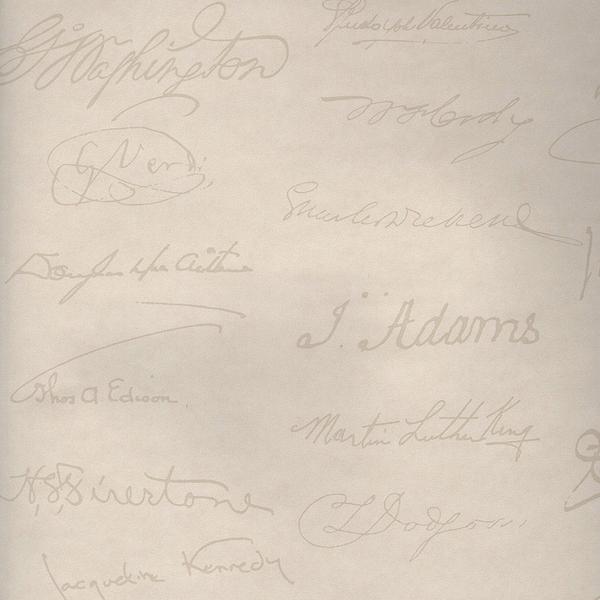 G Washington
Rudolph Valentino
Wm F Cody
G Verdi
Charles Dickens
Douglas MacArthur
J. Adams
Thos A Edison
Martin Luther King
H. S. Firestone
C L Dodgson
Jacqueline Kennedy